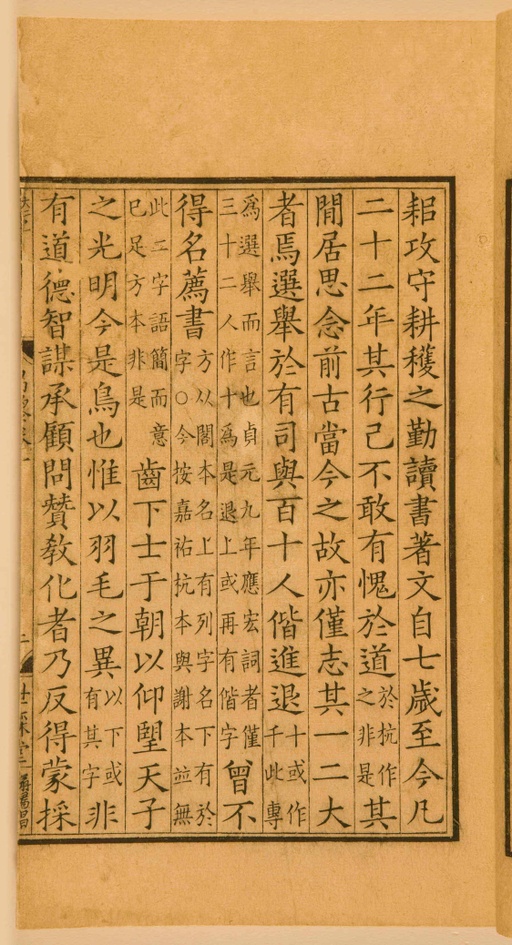 耜攻守耕穫之勤讀書著文自七歲至今凡
二十二年其行己不敢有愧於道於杭作之非是其
閒居思念前古當今之故亦僅志其一二大
者焉選舉於有司與百十人偕進退十或作千此專
爲選舉而言也貞元九年應宏詞者僅三十二人作十爲是退上或再有偕字曾不
得名薦書方以閣本名上有列字名下有於字○今按嘉祐杭本與謝本並無
此二字語簡而意已足方本非是齒下士于朝以仰朢天子
之光明今是鳥也惟以羽毛之異以下或有其字非
有道德智謀承顧問贊敎化者乃反得蒙採